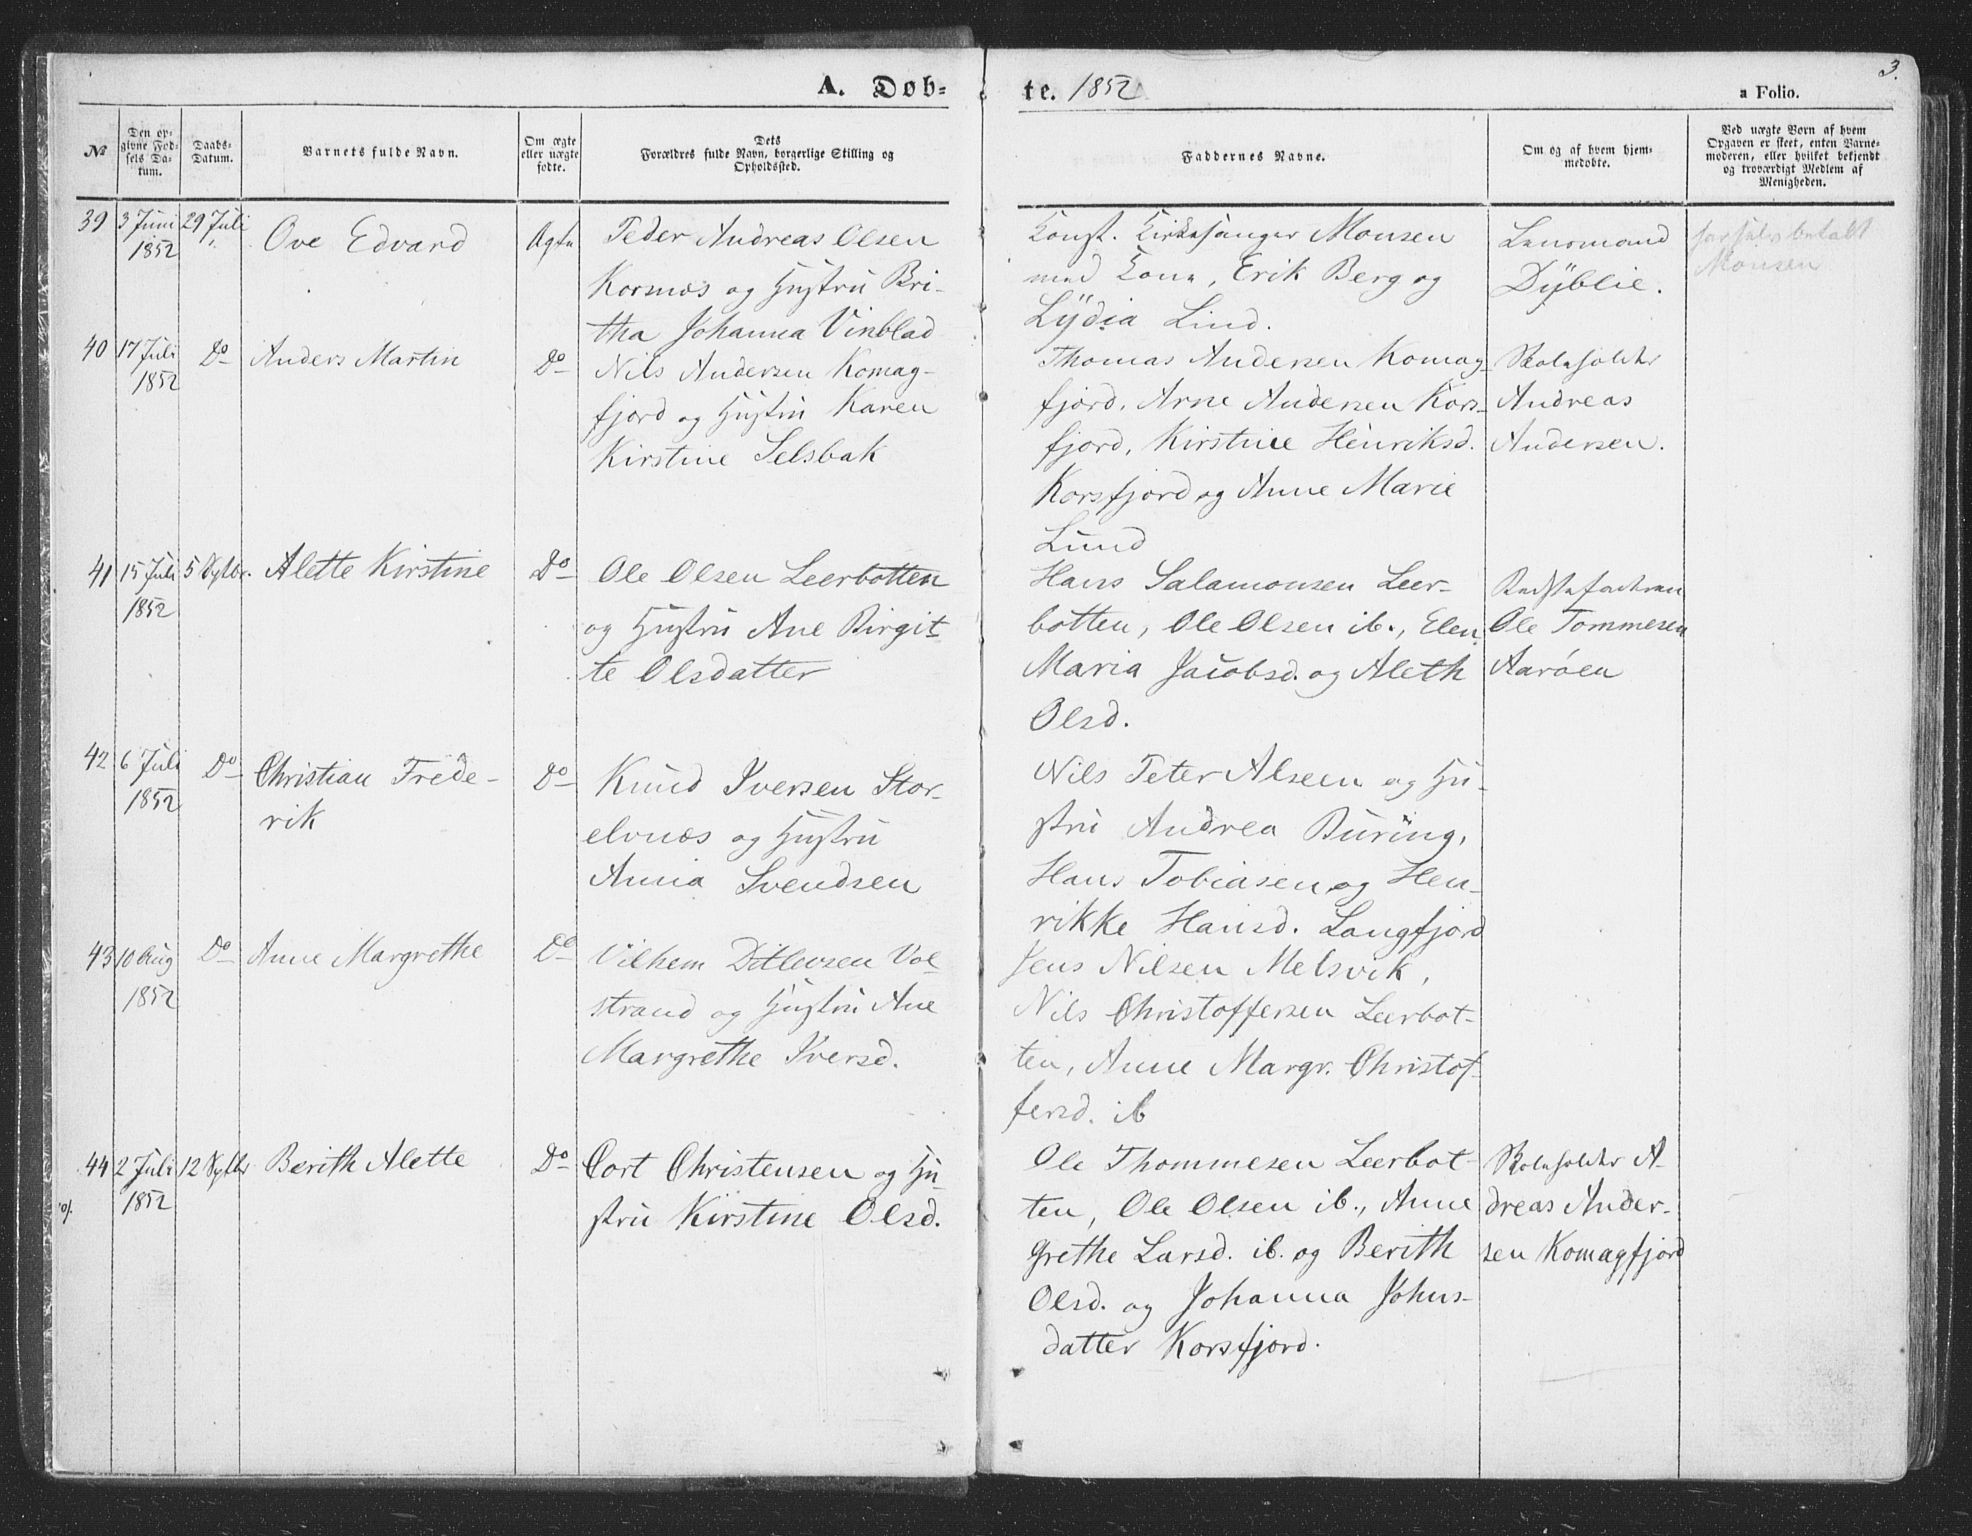 3.
A. Døb-
te. 1852
a Folio.
No
Den op-
givne Fød-
sels Da-
tum.
Daabs-
Datum.
Barnets fulde Navn.
Om ægte
eller uægte
fødte.
Dets
Forældres fulde Navn, borgerlige Stilling og
Opholdssted.
Faddernes Navne.
Om og af hvem hjem-
medøbte.
Ved uægte Born af hvem
Opgaven er skeet, enten Barne-
moderen, eller hvilket bekjendt
og troværdigt Medlem af
Menigheden.
39
3 Juni
1852
29 Juli
Ove Edvard
Ægte
Peder Andreas Olsen
Korsnæs og Hustru Bri-
tha Johanna Vinblad
Konst. Kirkesanger Monsen
med Kone, Erik Berg og
Lydia Lind.
Lensmand
Dyblie.
betalt
Monsen
40
17 Juli
1852
Do
Anders Martin
Do
Nils Andersen Komag-
fjord og Hustru Karen
Kirstine Selsbak
Thomas Andersen Komag-
fjord, Arne Andersen Kors-
fjord, Kirstine Henriksd.
Korsfjord og Anne Marie
Lund
Skoleholder
Andreas
Andersen.
41
15 Juli
1852
5 Sptbr.
Alette Kirstine
Do
Ole Olsen Leerbotten
og Hustru Ane Birgit-
te Olsdatter
Hans Salamonsen Leer-
botten, Ole Olsen ib., Elen
Maria Jacobsd. og Aleth
Olsd.
Ole Tommesen
Aarøen
42
6 Juli
1852
Do
Christian Frede-
rik
Do
Knud Iversen Stor-
elvnæs og Hustru
Anna Svendsen
Nils Peter Alseen og Hu-
stru Andrea Buring,
Hans Tobiasen og Hen-
rikke Hansd. Langfjord
43
10 Aug
1852
Do
Anne Margrethe
Do
Vilhem Ditlevsen Vol-
strand og Hustru Ane
Margrethe Iversd.
Jens Nilsen Melsvik,
Nils Christoffersen Leerbot-
ten, Anne Margr. Christof-
fersd. ib
44
2 Juli
1852
12 Sptbr
Berith Alette
Do
Cort Christensen og Hu-
stru Kirstine Olsd.
Ole Thommesen Leerbot-
ten, Ole Olsen ib., Anne
Grethe Larsd. ib. og Berith
Olsd. og Johanna Johns-
datter Korsfjord.
Skoleholder A-
dreas Ander-
sen Komagfjord